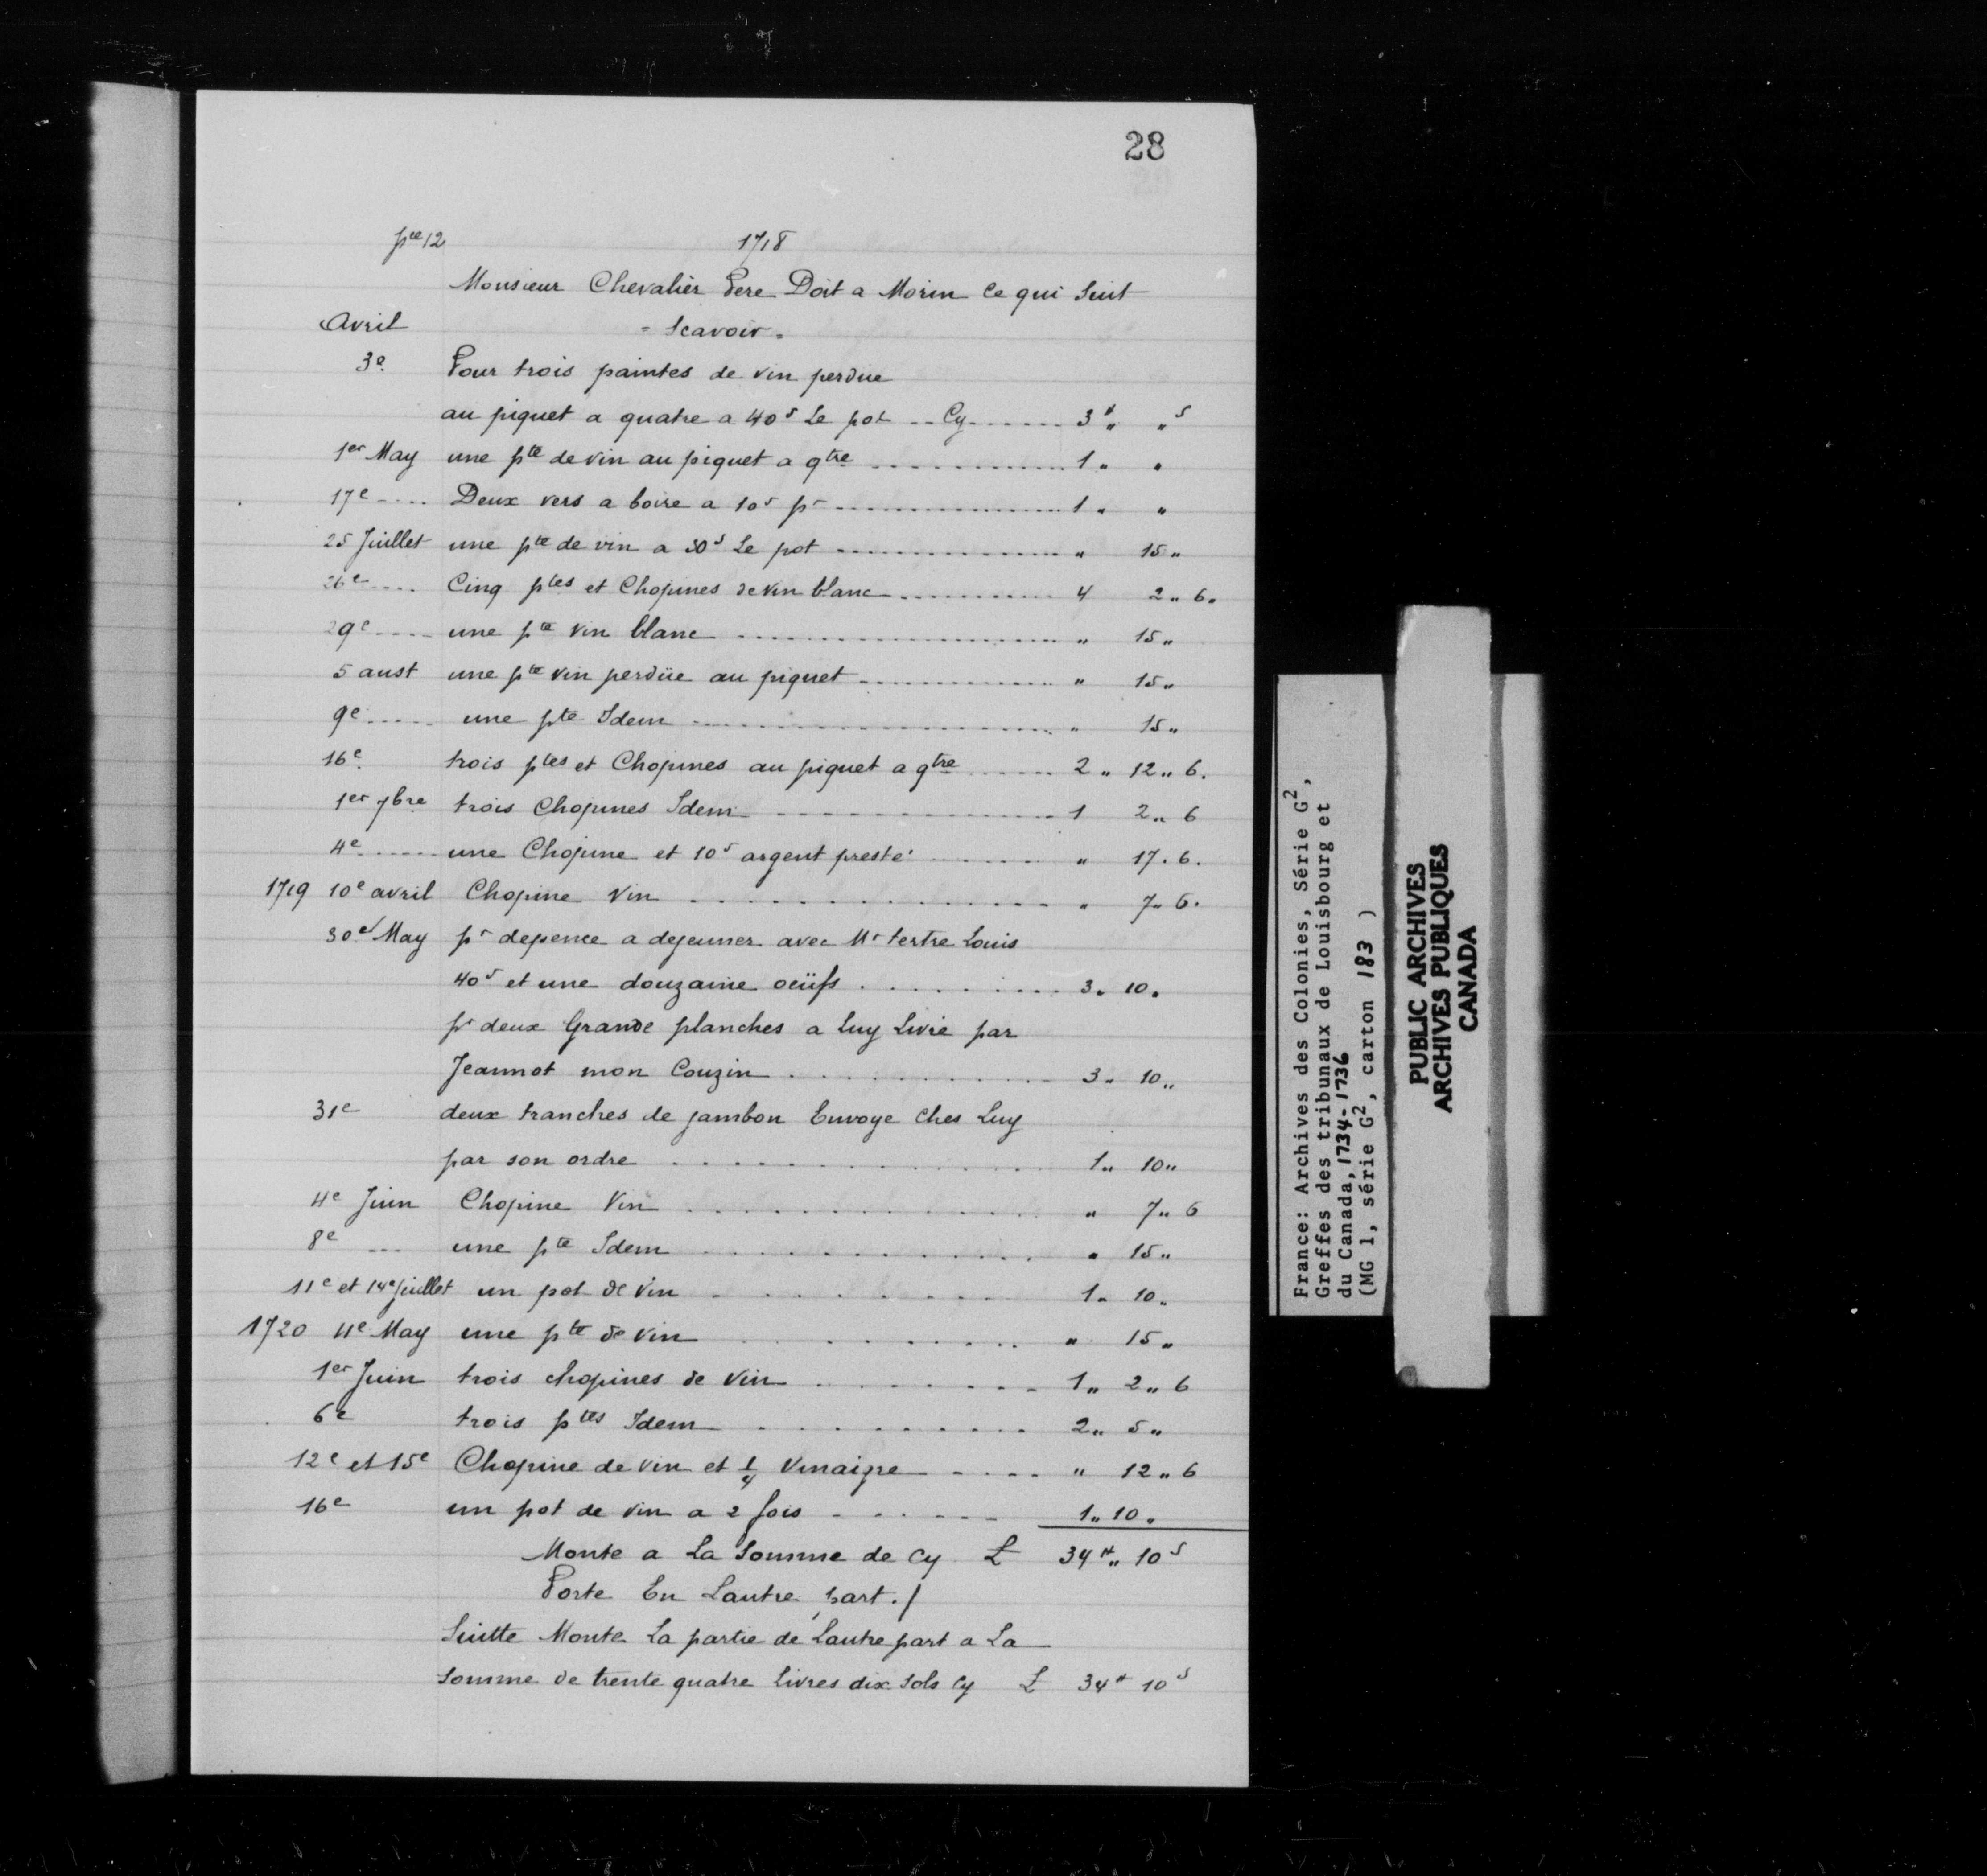 28
pce 12 1718
Monsieur Chevalier Pere Doit a Morin Ce qui Suit
Avril = Scavoir =
3e. Pour trois paintes de vin perdue
au piquet a quatre a 40s Le pot .. Cy ....... 3# „ „ s
1er May une pte de vin au piquet a qtre ............ 1 „ „
17e .... Deux vers a boire a 10s pr ............ 1 „ „
25 Juillet une pte de vin a 30s Le pot ............ „ 15 „
26e .... Cinq ptes et Chopines de vin blanc ............ 4 2 „ 6 „
29e .... une pte vin blanc ............ „ 15 „
5 aust une pte vin perdüe au piquet ............ „ 15 „
9e .... une pte Idem ............ „ 15 „
16e. trois ptes et Chopines au piquet a qtre ...... 2 „ 12 „ 6.
1er 7bre trois Chopines Idem ............ 1 2 „ 6
4e ..... une Chopine et 10s argent presté ....... „ 17 . 6.
1719 10e avril Chopine Vin ............ „ 7 „ 6.
30e May pr depence a dejeuner avec Mr tertre Louis
40s et une douzaine oeüfs ......... 3 „ 10 „
pr deux Grande planches a Luy Livré par
Jeannot mon Couzin ............ 3 „ 10 „
31e deux tranches de jambon Envoye Ches Luy
par son ordre ............ 1 „ 10 „
4e Juin Chopine Vin ............ „ 7 „ 6
8e ... une pte Idem ............ „ 15 „
11e et 14e Juillet un pot de Vin ......... 1 „ 10 „
1720 11e May une pte de Vin ......... „ 15 „
1er Juin trois chopines de Vin ......... 1 „ 2 „ 6
6e trois ptes Idem ......... 2 „ 5 „
12e et 15e Chopine de vin et 1/4 Vinaigre ..... „ 12 „ 6
16e un pot de vin a 2 fois ...... 1 „ 10 „
Monte a La Somme de Cy £ 34# „ 10s
Porte En Lautre part . /
Suitte Monte La partie de Lautre part a La
Somme de trente quatre Livres dix Sols Cy £ 34# 10s
France: Archives des Colonies, Série G2,
Greffes des tribunaux de Louisbourg et
du Canada, 1734-1736
(MG 1, série G2, carton 183 )
PUBLIC ARCHIVES
ARCHIVES PUBLIQUES
CANADA